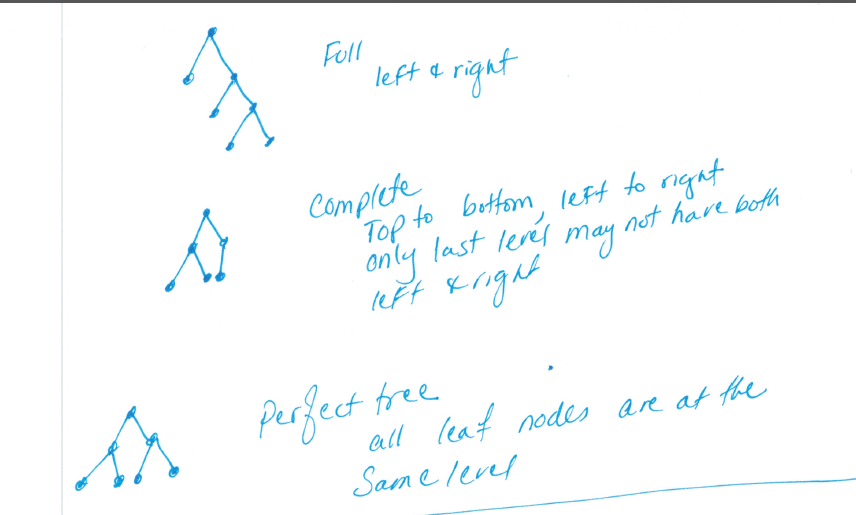 Full
left & right
Complete
Top to bottom, left to right
only last level may not have both
left & right
Perfect tree
all leaf nodes are at the
Same level